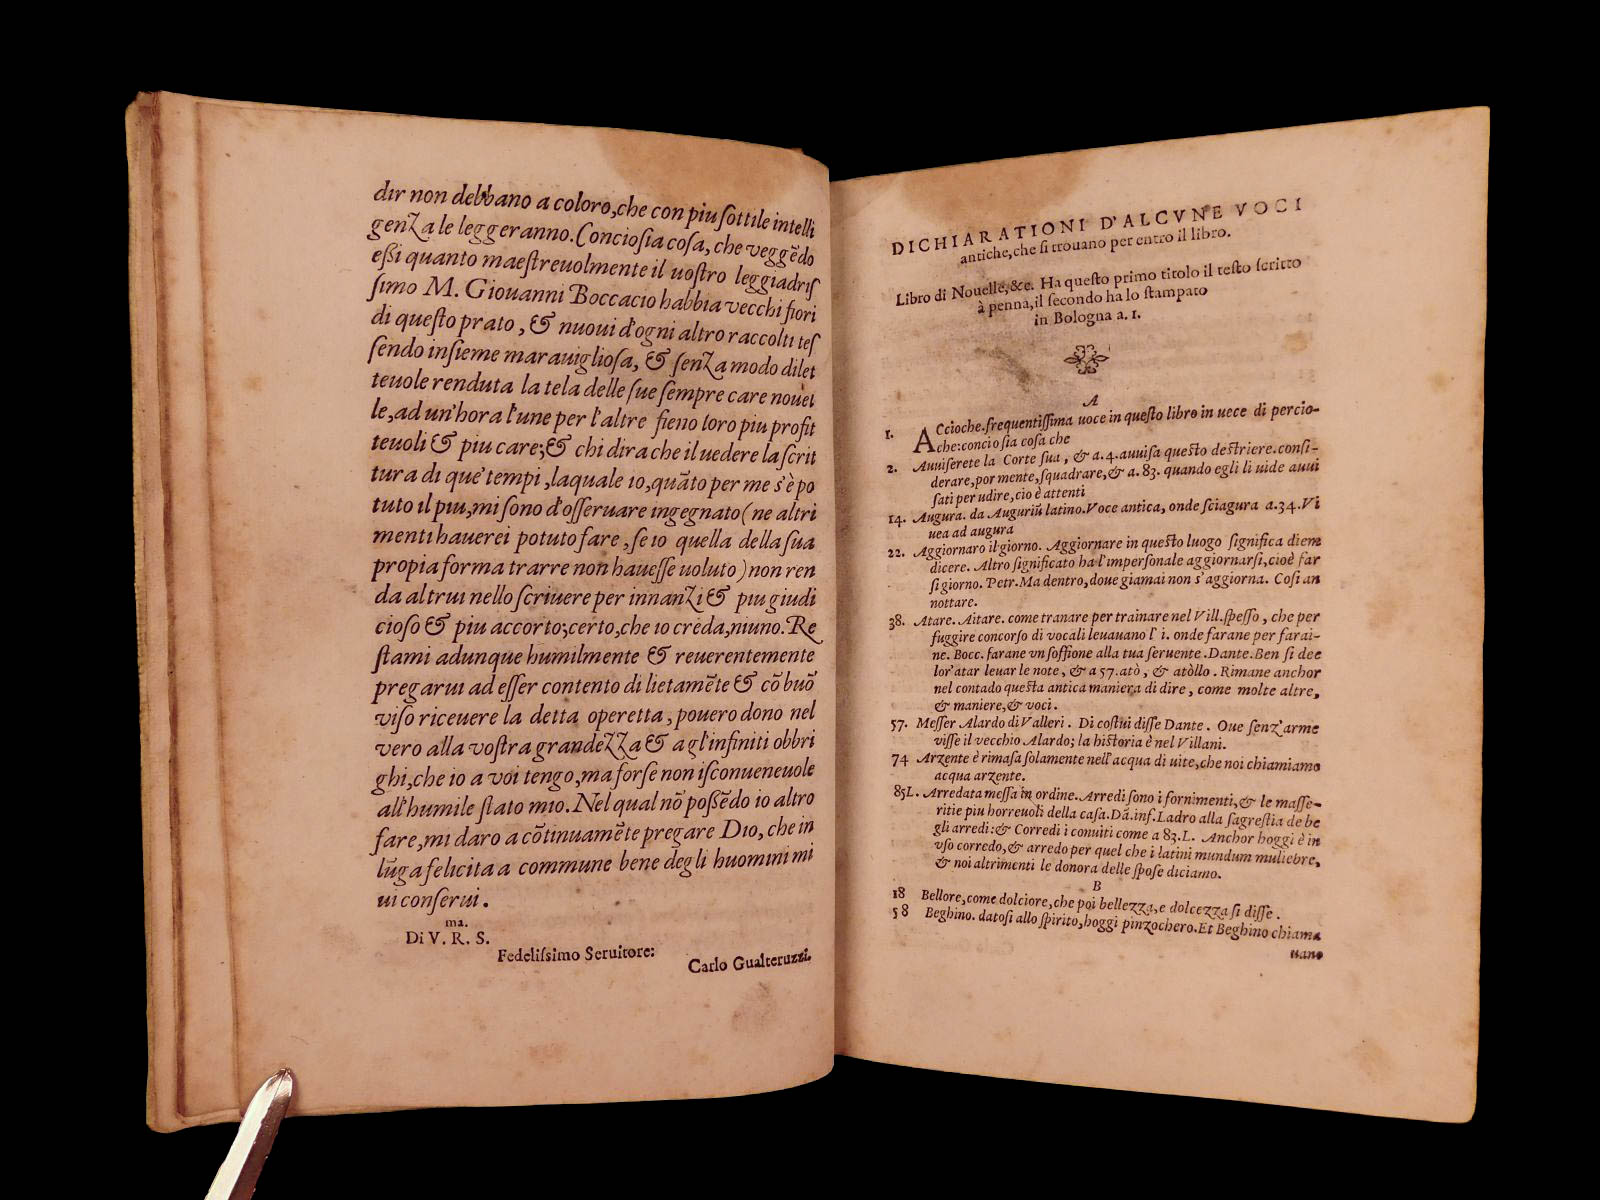 dir non debbano a coloro,che con piu ſottile intelli
genza le leggeranno. Concioſia coſa, che veggẽdo
eſsi quanto maeſtreuolmente il uoſtro leggiadriſ
ſimo M. Giouanni Boccacio habbia vecchi fiori
di queſto prato, & nuoui d'ogni altro raccolti teſ
ſendo inſieme marauiglioſa, & ſenza modo dilet
teuole renduta la tela delle ſue ſempre care nouel
le,ad un'hora l'une per l'altre fieno loro piu profit
teuoli & piu care;& chi dira che il uedere la ſcrit
tura di que' tempi ,laquale io,quãto per me s'è po
tuto il piu,mi ſono d'oſſeruare ingegnato( ne altri
menti hauerei potuto fare ,ſe io quella della ſua
propia forma trarre non haueſſe uoluto ) non ren
da altrui nello ſcriuere per innanzi & piu giudi
cioſo & piu accorto;certo,che io creda,niuno. Re
ſtami adunque humilmente & reuerentemente
pregarui ad eſſer contento di lietamẽte & cõ buõ
viſo riceuere la detta operetta, pouero dono nel
vero alla voſtra grandezza & a gl'infiniti obbri
ghi,che io a voi tengo,ma forſe non iſconueneuole
all'humile ſtato mio. Nel qual nõ poſſẽdo io altro
fare,mi daro a cõtinuamẽte pregare Dio, che in
lũga felicita a commune bene degli huomini mi
ui conſerui.
ma.
Di V. R. S.
Fedeliſsimo Seruitore:
Carlo Gualteruzzi.
DICHIARATIONI D'ALCVNE VOCI
antiche,che ſi trouano per entro il libro.
Libro di Nouelle,&c. Ha queſto primo titolo il teſto ſcritto
à penna,il ſecondo ha lo ſtampato
in Bologna a. 1.
A
1. ACcioche.frequentiſſima uoce in queſto libro in uece di percio-
che:concio ſia coſa che
2. Auuiſerete la Corte ſua, & a.4.auuiſa queſto deſtriere.conſi-
derare,por mente,ſquadrare,& a. 83. quando egli li uide auui
ſati per udire,cio è attenti
14. Augura. da Auguriũ latino.Voce antica, onde ſciagura a.34.Vi
uea ad augura
22. Aggiornaro il giorno. Aggiornare in queſto luogo ſignifica diem
dicere. Altro ſignificato ha l'imperſonale aggiornarſi,cioè far
ſi giorno. Petr.Ma dentro,doue giamai non s'aggiorna. Coſi an
nottare.
38. Atare. Aitare. come tranare per trainare nel Vill.ſpeſſo, che per
fuggire concorſo di vocali leuauano l' i. onde farane per farai-
ne. Bocc. farane vn ſoffione alla tua ſeruente.Dante.Ben ſi dee
lor'atar leuar le note, & a 57.atò, & atòllo. Rimane anchor
nel contado queſta antica maniera di dire, come molte altre,
& maniere,& voci.
57. Meſſer Alardo di Valleri. Di coſtui diſſe Dante. Oue ſenz'arme
viſſe il vecchio Alardo; la hiſtoria è nel Villani.
74 Arzente è rimaſa ſolamente nell'acqua di uite,che noi chiamiamo
acqua arzente.
85L. Arredata meſſa in ordine. Arredi ſono i fornimenti,& le maſſe-
ritie piu horreuoli della caſa.Dã.inf.Ladro alla ſagreſtia de be
gli arredi:& Corredi i conuiti come a 83.L. Anchor hoggi è in
vſo corredo,& arredo per quel che i latini mundum muliebre,
& noi altrimenti le donora delle ſpoſe diciamo.
B
18 Bellore,come dolciore,che poi bellezza,e dolcezza ſi diſſe.
58 Beghino. datoſi allo ſpirito,hoggi pinzochero.Et Beghino chiama
uano